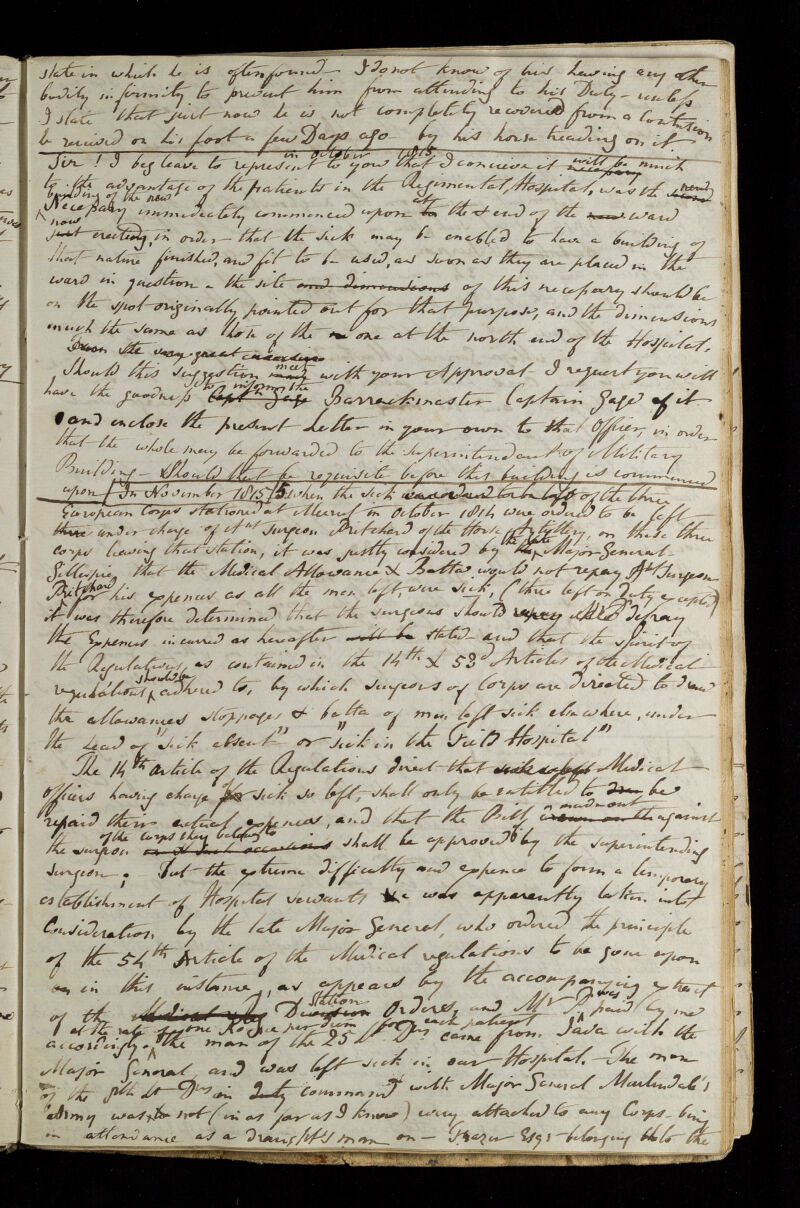 state in which he is often found – I do not know of his having any other
bodily infirmity to prevent him from attending to his Duty – unless
I state that just now he is not completely recovered from a Contusion
he received on his foot a few Days ago – by his horse treading on it.
in October 1815
Sir! I beg leave to represent to you that I conceive it necessary will be much
to the advantage of the patients in the Regimental Hospital, was the
building of the new
Necessary immediately commenced upon at the end of the ward
now
just erecting, in order – that the sick may be enabled to have a building of
that nature finished, and fit to be used, as soon as they are placed in the
ward in question – the site and dimensions of this necessary should be
on the spot originally pointed out for that purpose, and the dimensions
much the same as those of the one at the north end of the Hospital.
the very great
Should this suggestion meet with your Approval I request you will
have the goodness to inform the Captn Gage Barrackmaster Captain Gage of it
and enclose the present Letter in your own to that Officer, in order
that the whole may be forwarded to the Superintendant of Military
Building – Should that be requisite before this building is commenced
upon / In November 1815 / When the sick of the three
European Corps stationed at Meerut in October 1814 were ordered to be left –
there under charge of Asst Surgeon Pritchard of the Horse Artillery, on these three
corps leaving that station, it was justly considered by the late Major General
Gillespie, that the Medical Allowance & Batta would not repay Asst Surgeon
Pritchard for his expences as all the men left, were sick, (three left on Duty excepted)
it was therefore determined that the surgeons should defray
the Expences incurred as hereafter will be stated – and that the spirit of
the Regulations, as contained in the 14th & 53d Articles of the Medical
regulations should be adhered to, by which surgeons of Corps are directed to draw
the allowances stoppages & batta of men left sick elsewhere, under
the head of "sick absent" or "sick in the Field Hospital"
The 14th Article of the Regulations direct that Medical
officers having charge for sick so left, shall only be entitled to be
repaid their actual expences, and that the Bill made out against
of the corps they belong to
the surgeon on such occasions shall be approved by the superintending
surgeon; – but the extreme difficulty and expence to form a temporary
establishment of Hospital servants was apparently taken into
Consideration by the late Major General, who ordered the principle
of the 54th Article of the Medical regulations to be gone upon
in this instance, as appears by the accompanying extract
of the Station Orders, and Mr P. was paid by me
at the rate of one Rupee per diem for each patient
accordingly. The man of the 25th Drs came from Java with the
Major General and was left sick in our Hospital. – The man
of the 8th Lt Drs in duty command with Major General Marlindale's
army was not (in as far as I know) very attached to any Corps being
in attendance as a draughtsman on – Frazer Esqr – belonging to the